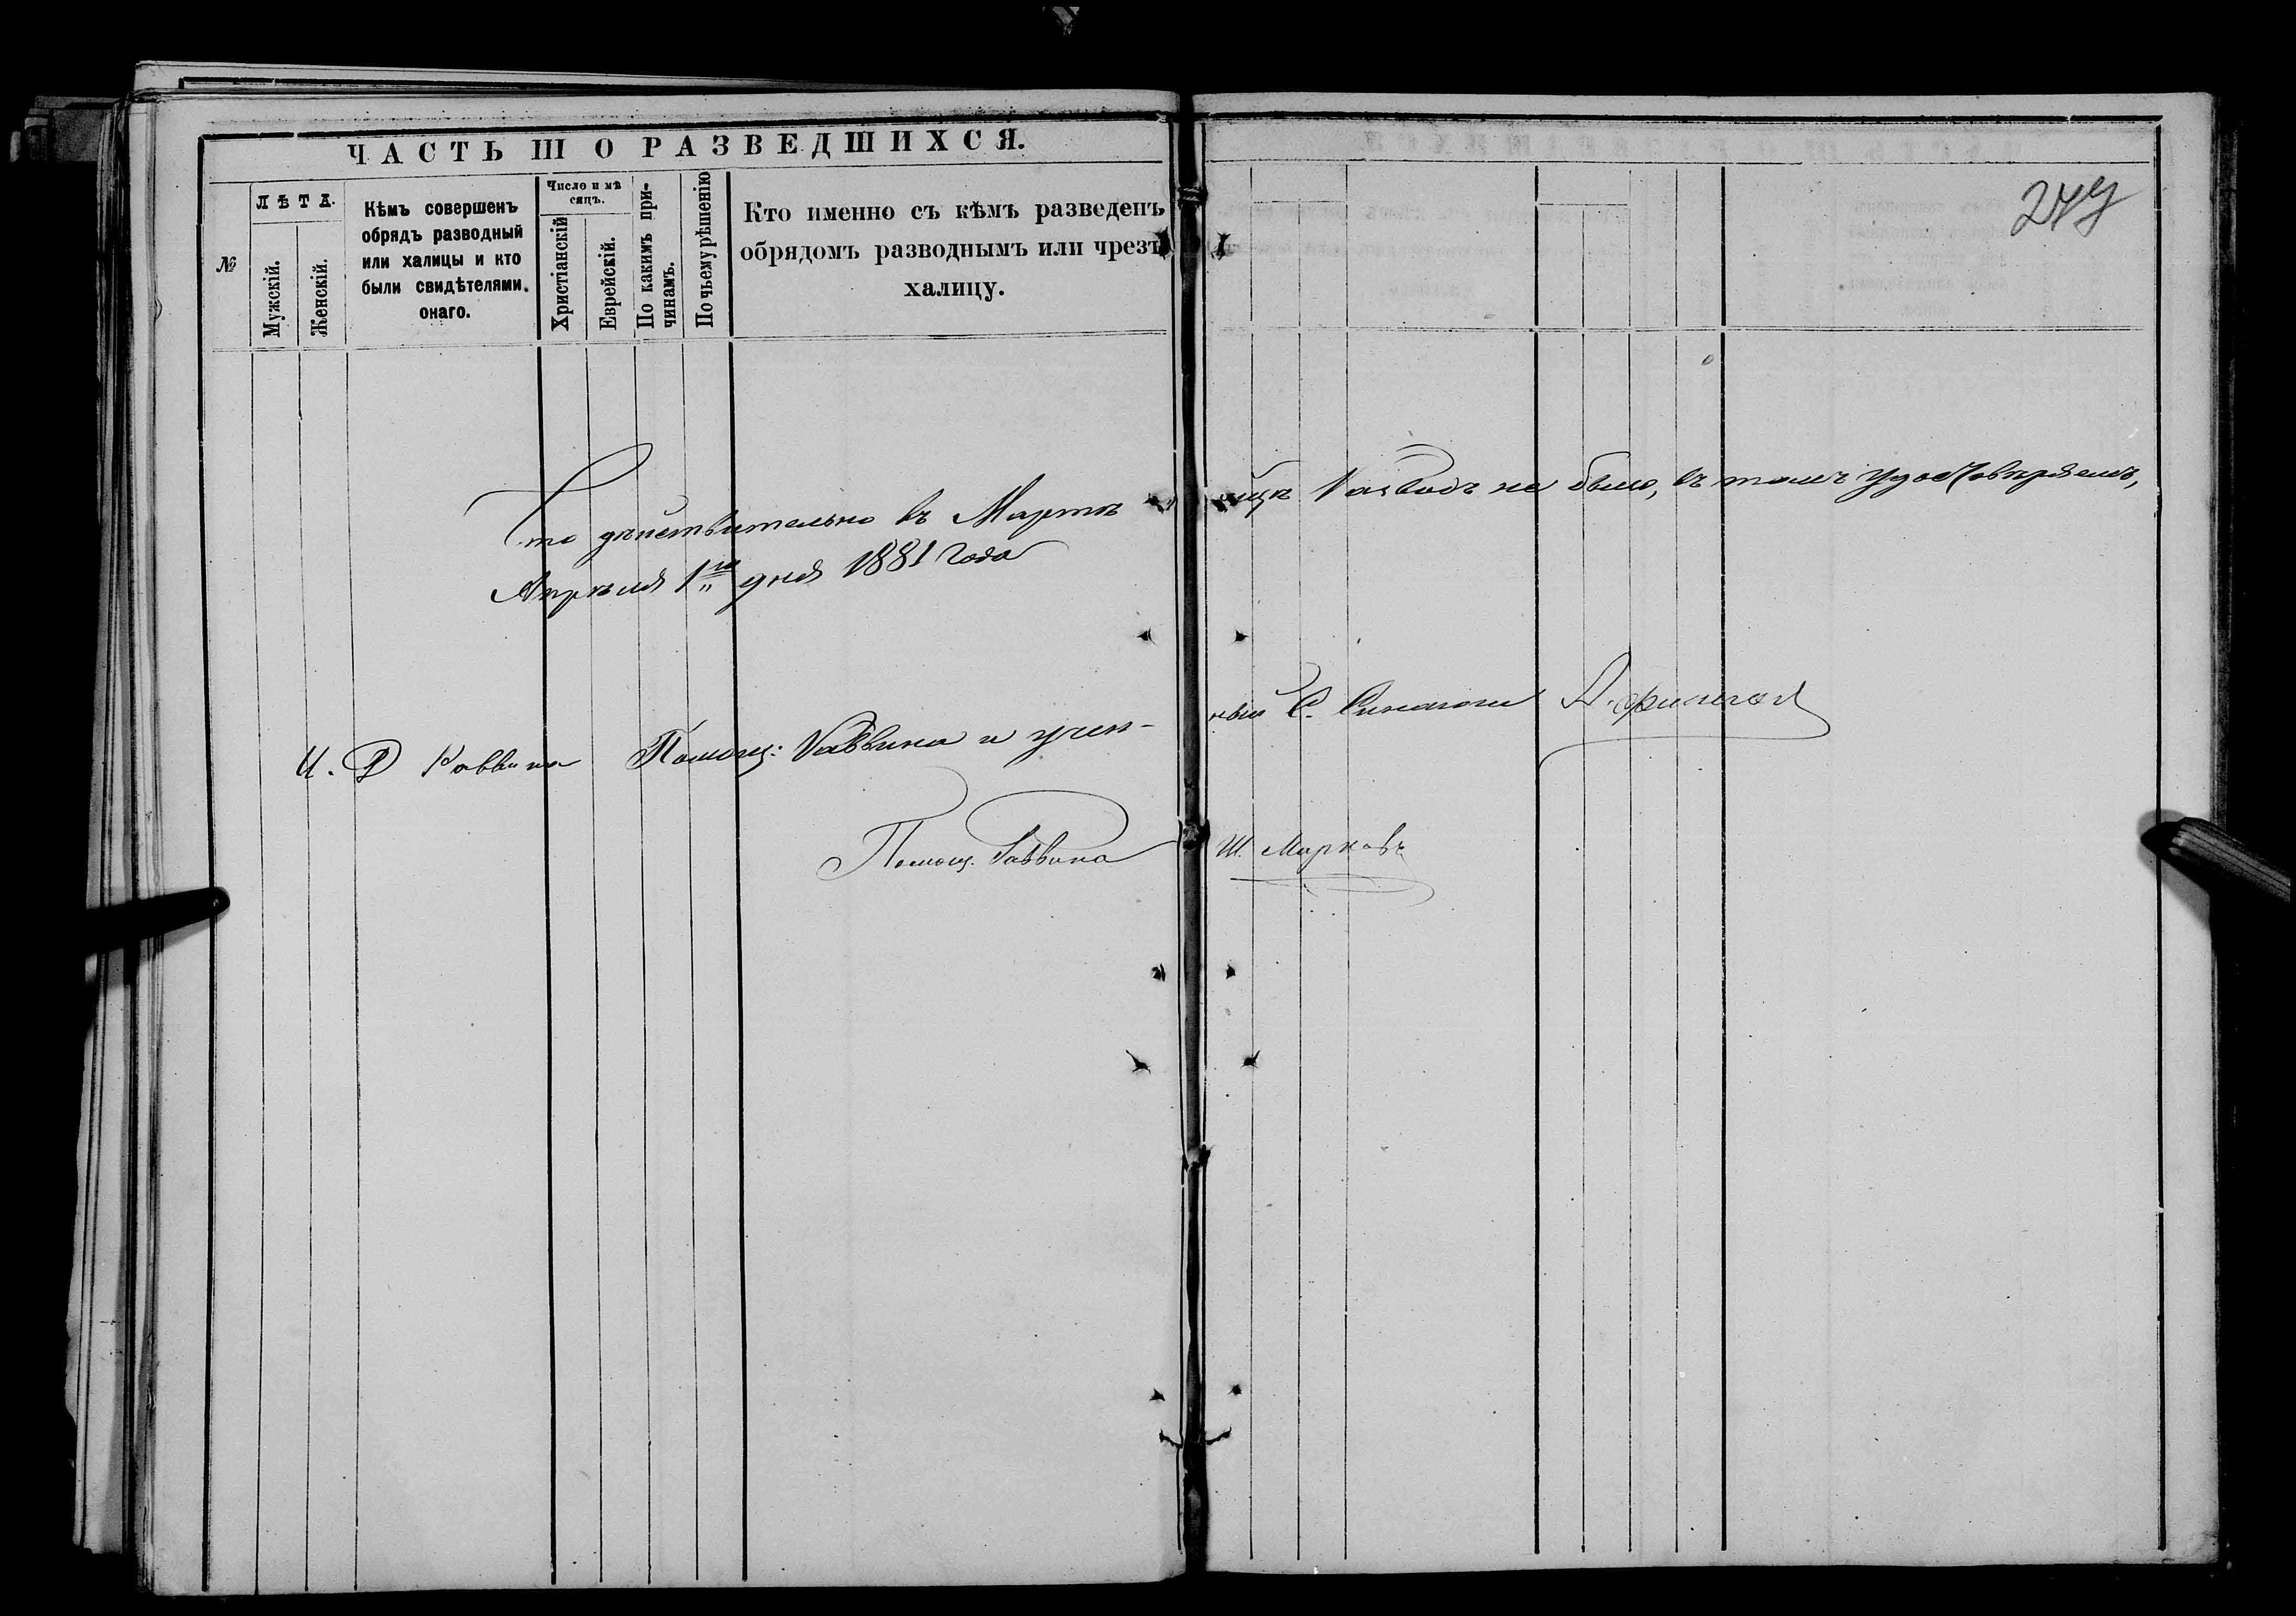 ЧАСТЬ III О РАЗВЕДШИХСЯ.
№
ЛѢТА.
Мужскій.
Женскій.
Кѣмъ совершенъ
обрядъ разводный
или халицы и кто
были свидѣтелями
онаго.
Число и мѣ
сяцъ.
Христіанскій
Еврейскій.
По какимъ при-
чинамъ.
По чьему рѣшенію
Кто именно съ кѣмъ разведенъ
обрядомъ разводнымъ или чрезъ
халицу.
Что дѣйствительно въ Мартѣ разводъ не было, въ томъ удостовѣряемъ,
Апрѣля 1го дня 1881 года
И. Д Раввина Помощ: Раввина и учен-ный С. Синагоги
Помощ. Раввина Ш. Марковъ